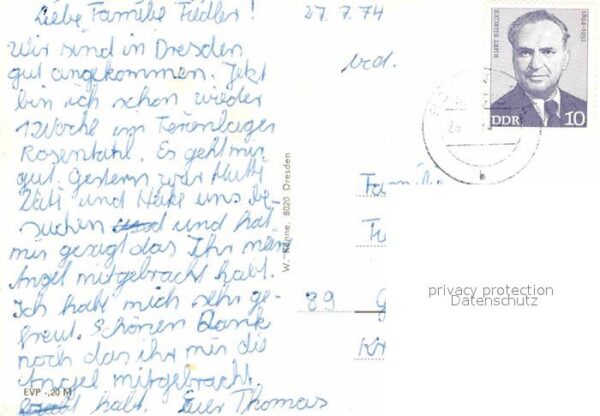 Liebe Familie Fiedler!
27.7.74
Wir sind in Dresden
gut angekommen. Jetzt
bin ich schon wieder
1 Woche im Ferienlager
Rosentahl. Es geht mir
gut. Gestern war Mutti
Vati und Heike uns be-
suchen und hat
mir gesagt das Ihr meine
Angel mitgebracht habt.
Ich habe mich sehr ge-
freut. Schönen Dank
noch das ihr mir die
Angel mitgebracht
habt. Euer Thomas
EVP -,20 M
W. Könne, 8020 Dresden
KURT BÜRGER 1894-1951
DDR 10
Fami
89 G
privacy protection
Datenschutz